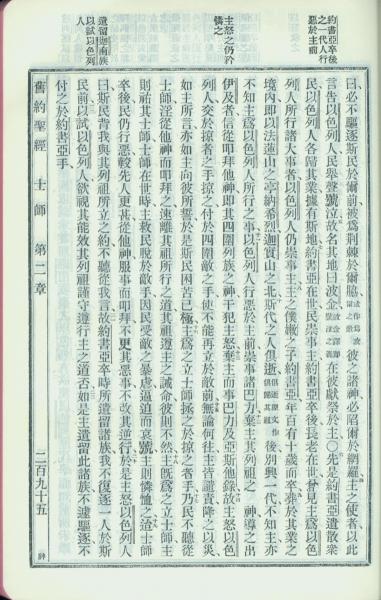 約書亞卒後
之一代人行
惡於主前
主怒之仍矜
憐之
遺留迦南族
以試以色列
人
曰必不驅逐斯民於爾前被爲荊棘於爾脇彼之諸神必陷爾於網羅主之使者以此
言告以色列人民舉聲號泣故名其地曰波金在彼獻祭於主○先是約書亞遣散眾
民以色列人各歸其業據有斯地約書亞在世民崇事主約書亞卒後長老在世曾見主爲以色
列人所行諸大事者以色列人仍崇事主主之僕嫩之子約書亞年百有十歲而卒葬於其業之
境內卽以法蓮山之亭納希烈迦實山之北斯代之人俱逝後別興一代不知主亦
不知主爲以色列人所行之事以色列人行惡於主前崇事諸巴力棄主其列祖之神導之出
伊及者而從叩拜他神卽其四圍列族之神干犯主怒棄主而事巴力及亞斯他錄故主怒以色
列人交於掠者之手掠之付於四圍敵之手使不能再立於敵前無論何往主皆譴責降之以災
如主所言亦如主向彼所誓於是斯民困苦已極主爲之立士師拯之於掠之者手乃民不聽從
士師淫從他神而叩拜之速離其祖所行之道其祖遵主之誡命彼則不然主旣爲之立士師主
則祐其士師士師在世時主救民脫於敵手因民受敵之暴虐逼迫而哀號主則憐恤之迨士師
卒後民仍行惡較先人更甚從他神服事而叩拜不更其惡事不改其逆行於是主怒以色列人
曰斯民背我與其列祖所立之約不聽從我言故約書亞卒時所遺留諸族我不復逐一人於斯
民前以試以色列人欲視其能效其列祖謹守遵行主之道否如是主遺留此諸族不遽驅逐不
付之於約書亞手
舊約聖經 士師 第二章 二百九十五